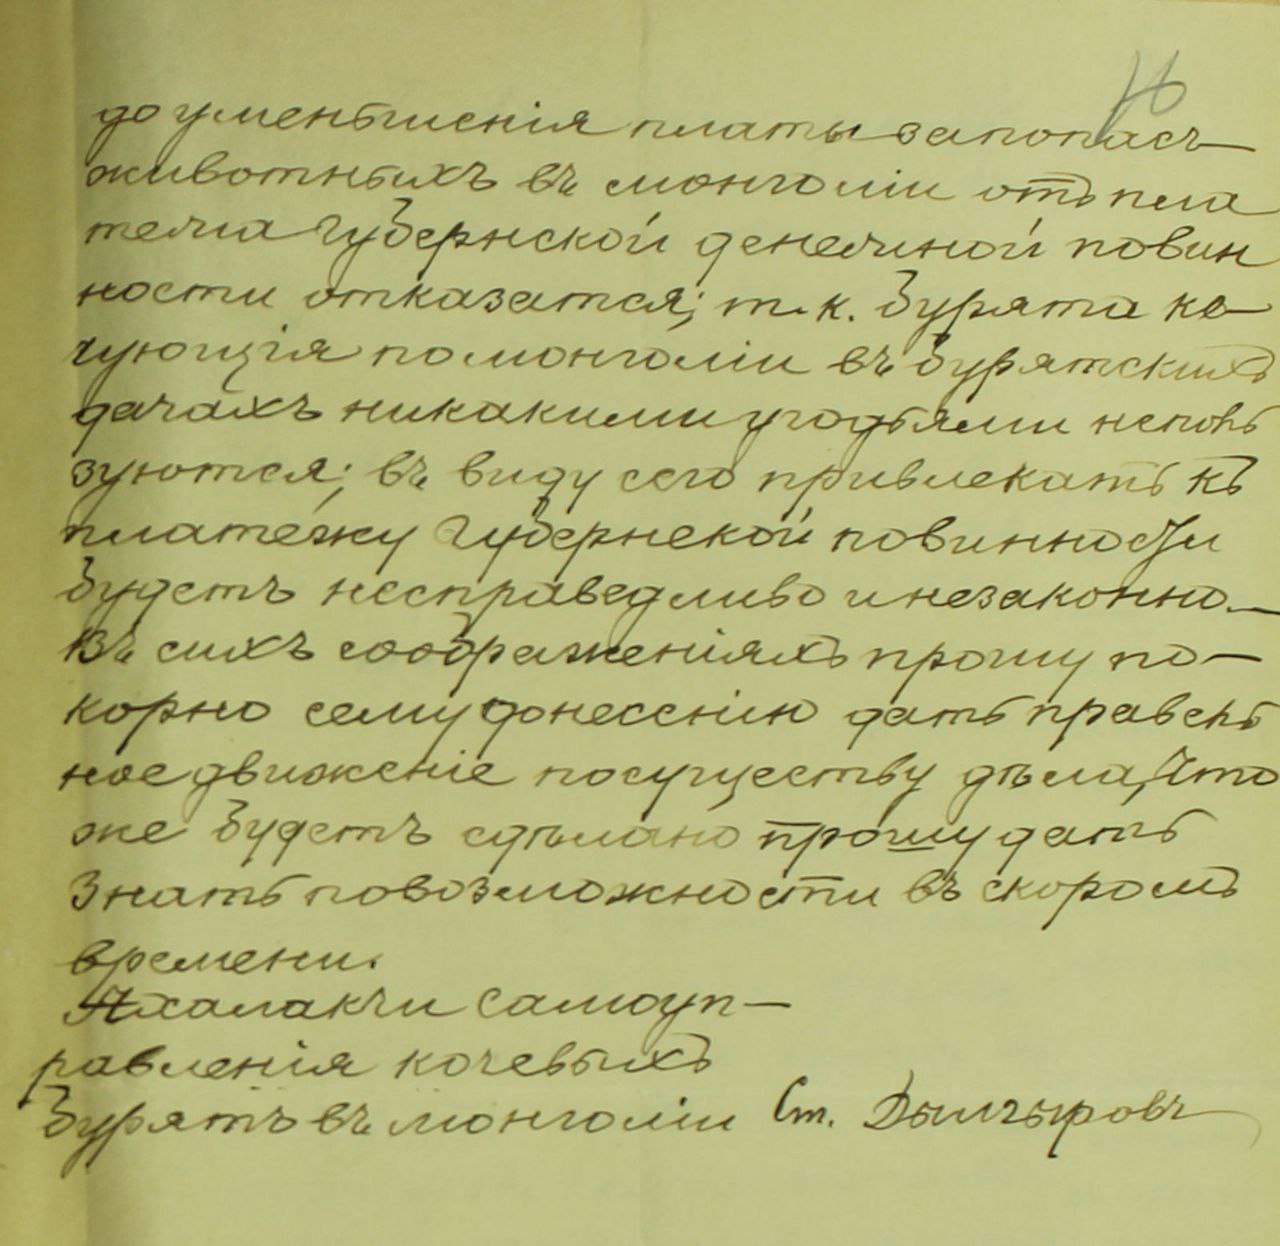 до уменьшенія платы за попасъ
животныхъ въ монголіи отъ пла
тежа губернской денежной повин
ности отказатся; т.к. бурята ко-
чующія по монголіи въ бурятскихъ
дачахъ никакими угодьями непользуются
зуются; въ виду сего привлекать къ
платежу губернской повинности
будетъ несправедливо и незаконно.—
Въ сихъ соображеніяхъ прошу по-
корно сему донесению дать правель
ное движеніе посуществу дѣла, что
же будетъ сдѣлано прошу дать
знать повозможности въ скоромъ
времени.
Ахалакчи Самоуп-
равленія кочевыхъ
бурятъ въ монголіи Ст. Дылгыровъ